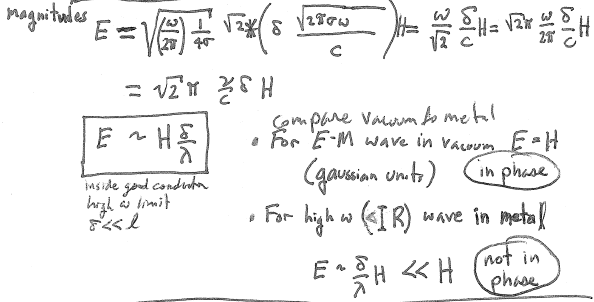 magnitudes E = √((ω/2π) 1/4σ) √2 * (δ √(2πσω)/c) H = ω/√2 δ/c H = √2 π ω/2π δ/c H
= √2 π ν/c δ H
E ~ H δ/λ
inside good conductor
high ω limit
δ << l
compare vacuum to metal
• For E-M wave in vacuum E = H
(gaussian units) in phase
• For high ω (<IR) wave in metal
E ~ δ/λ H << H not in phase